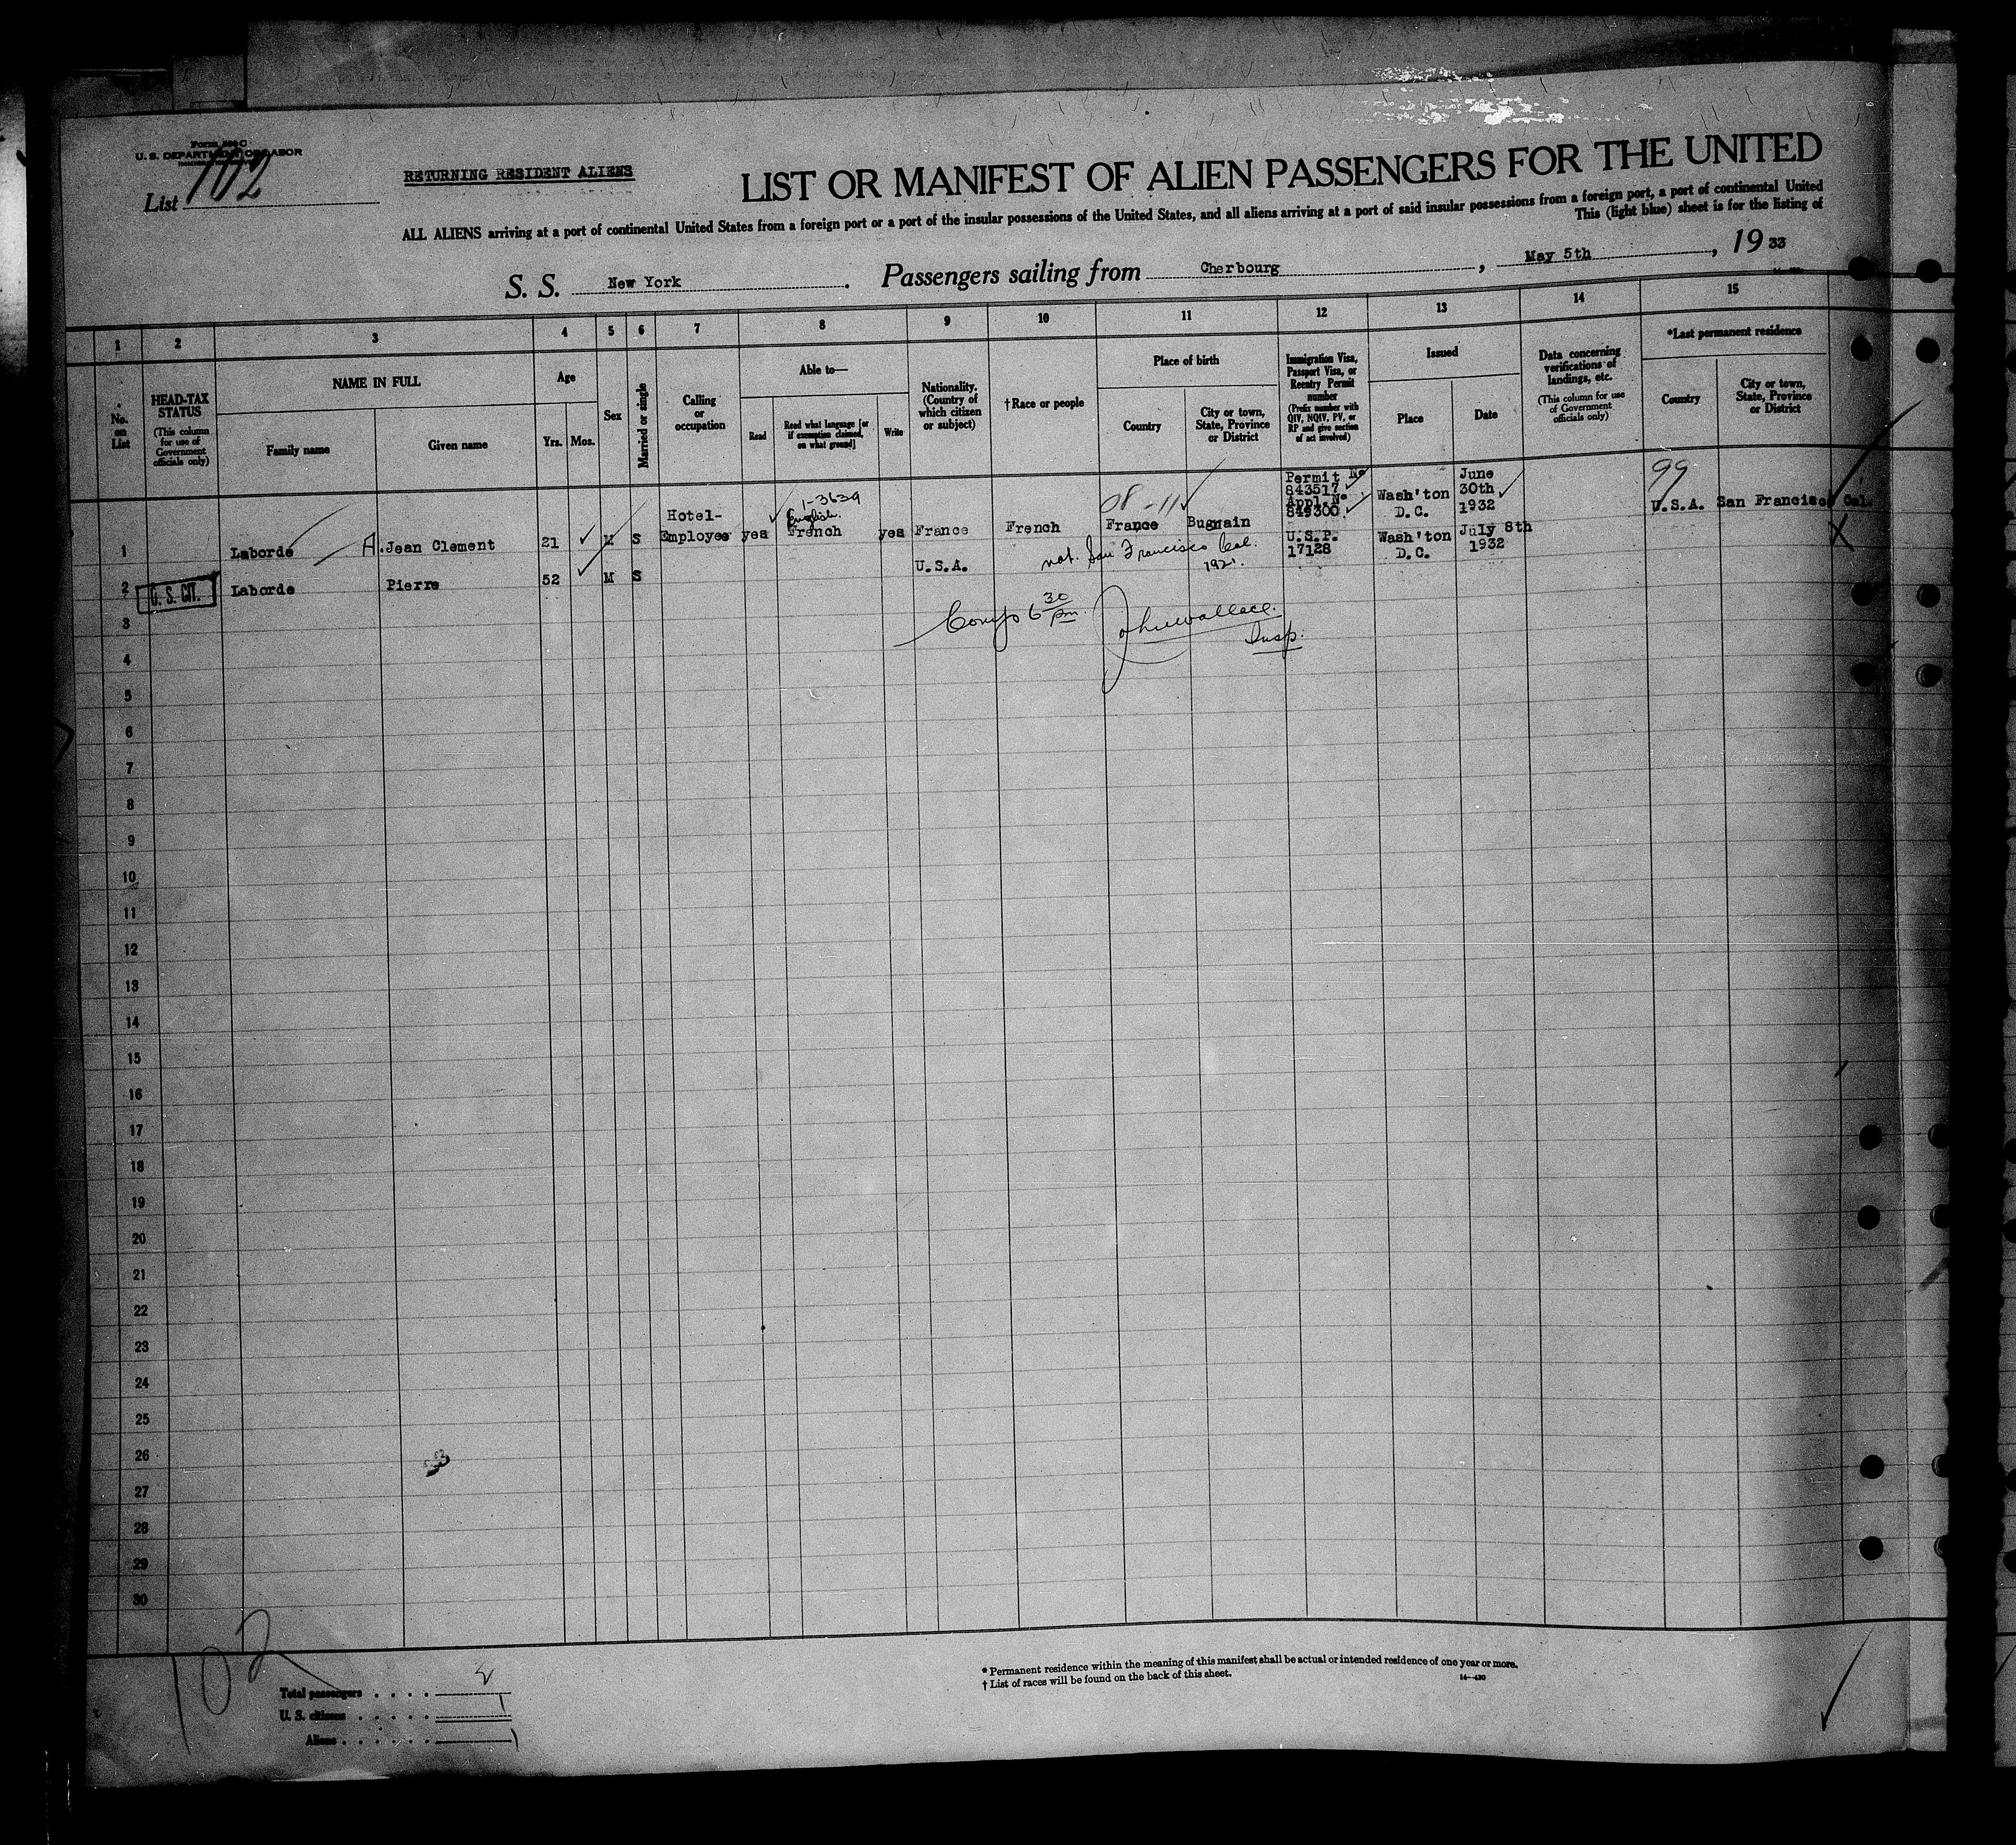 U. S. DEPARTMENT OF LABOR
List 102
RETURNING RESIDENT ALIENS
LIST OR MANIFEST OF ALIEN PASSENGERS FOR THE UNITED
ALL ALIENS arriving at a port of continental United States from a foreign port or a port of the insular possessions of the United States, and all aliens arriving at a port of said insular possessions from a foreign port, a port of continental United
This (light blue) sheet is for the listing of
S. S. New York. Passengers sailing from Cherbourg, May 5th, 19 33
1 2 3 4 5 6 7 8 9 10 11 12 13 14 15
No. on List
HEAD-TAX STATUS
(This column for use of Government officials only)
NAME IN FULL
Family name Given name
Age
Yrs. Mos.
Sex
Married or single
Calling or occupation
Able to—
Read
Read what language [or if exemption claimed, on what ground]
Write
Nationality. (Country of which citizen or subject)
†Race or people
Place of birth
Country
City or town, State, Province or District
Immigration Visa, Passport Visa, or Reentry Permit number
(Prefix number with QIV, NQIV, PV, or RP and give section of act involved)
Issued
Place Date
Data concerning verifications of landings, etc.
(This column for use of Government officials only)
*Last permanent residence
Country
City or town, State, Province or District
1 Laborde A. Jean Clement 21 M S Hotel-Employee yes 1-3639 English French yes France French 08-11 France Bugnain Permit No 843517 Appl. No 849300 Wash'ton D.C. June 30th 1932 99 U.S.A. San Francisco Cal.
2 U. S. CIT. Laborde Pierre 52 M S U.S.A. nat. San Francisco Cal. 192 U.S.P. 17128 Wash'ton D.C. July 8th 1932 X
3 6 30 pm. John Wallace. Insp.
4
5
6
7
8
9
10
11
12
13
14
15
16
17
18
19
20
21
22
23
24
25
26
27
28
29
30
102
Total passengers . . . . 2
U. S. citizens . . . . . 1
Aliens . . . . . . 1
* Permanent residence within the meaning of this manifest shall be actual or intended residence of one year or more.
† List of races will be found on the back of this sheet.
14—430